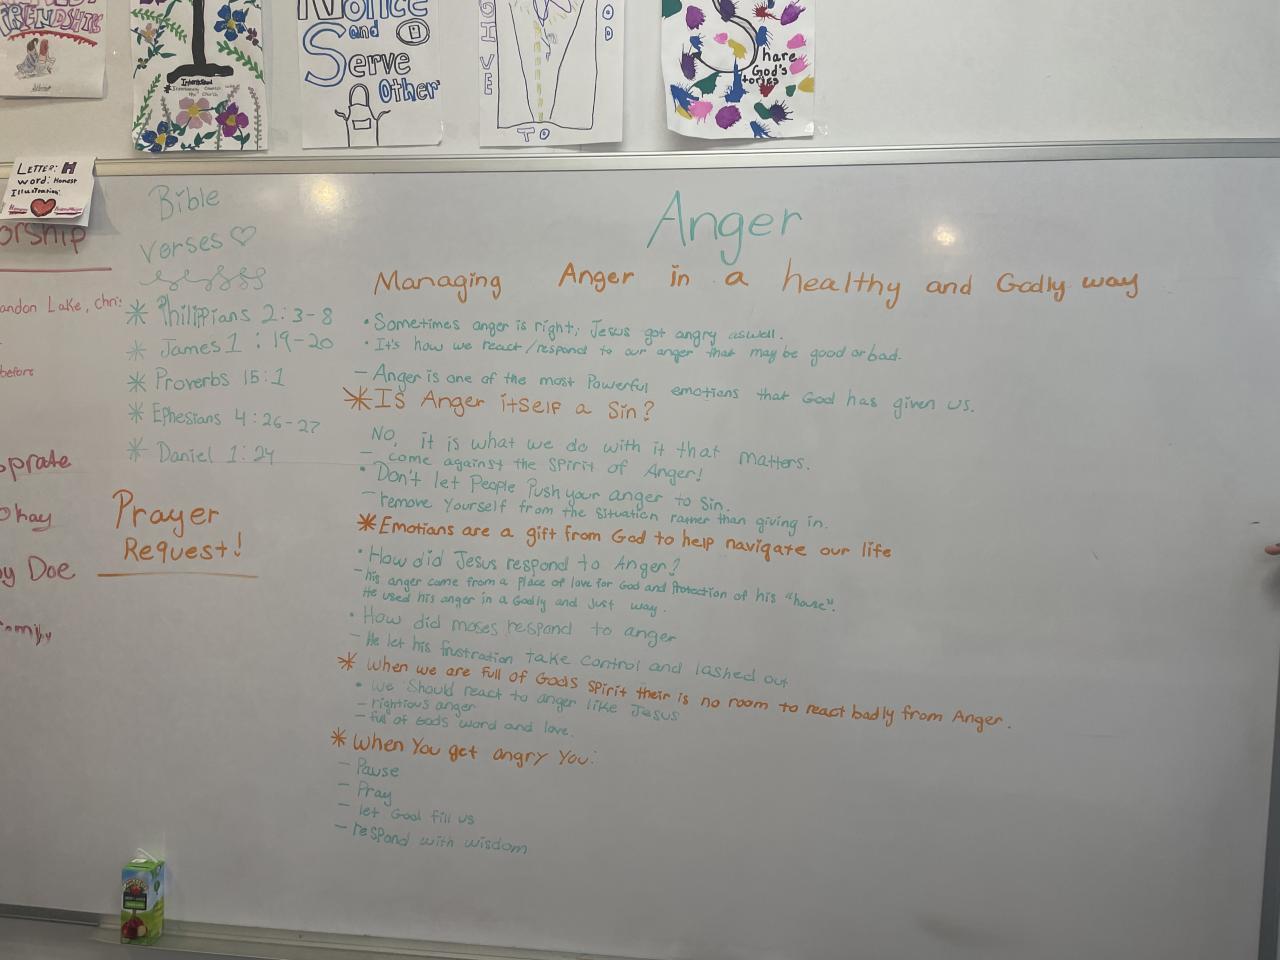 FRIENDSHIP
Intentional
Notice
and
Serve
other
GIVE
TO
Share
God's
stories
LETTER: H
word: Honest
Illustration:
orship
andon Lake, chri
before
oprate
Okay
y Doe
Family
Bible
verses ♡
* Philippians 2:3-8
* James 1:19-20
* Proverbs 15:1
* Ephesians 4:26-27
* Daniel 1:24
Prayer
Request!
Anger
Managing Anger in a healthy and Godly way
• Sometimes anger is right; Jesus got angry aswell.
• It's how we react/respond to our anger that may be good or bad.
- Anger is one of the most Powerful emotians that God has given us.
* Is Anger itself a Sin?
No, it is what we do with it that matters.
- come against the spirit of Anger!
• Don't let People Push your anger to Sin.
- remove Yourself from the situation rather than giving in.
* Emotians are a gift from God to help navigate our life
• How did Jesus respond to Anger?
- his anger came from a place of love for God and Protection of his "house".
He used his anger in a Godly and Just way.
• How did moses respond to anger
- He let his frustration take control and lashed out
* When we are full of God's Spirit their is no room to react badly from Anger.
• we should react to anger like Jesus
- rightious anger
- full of Gods word and love.
* When You get angry You:
- Pause
- Pray
- let God fill us
- respond with wisdom